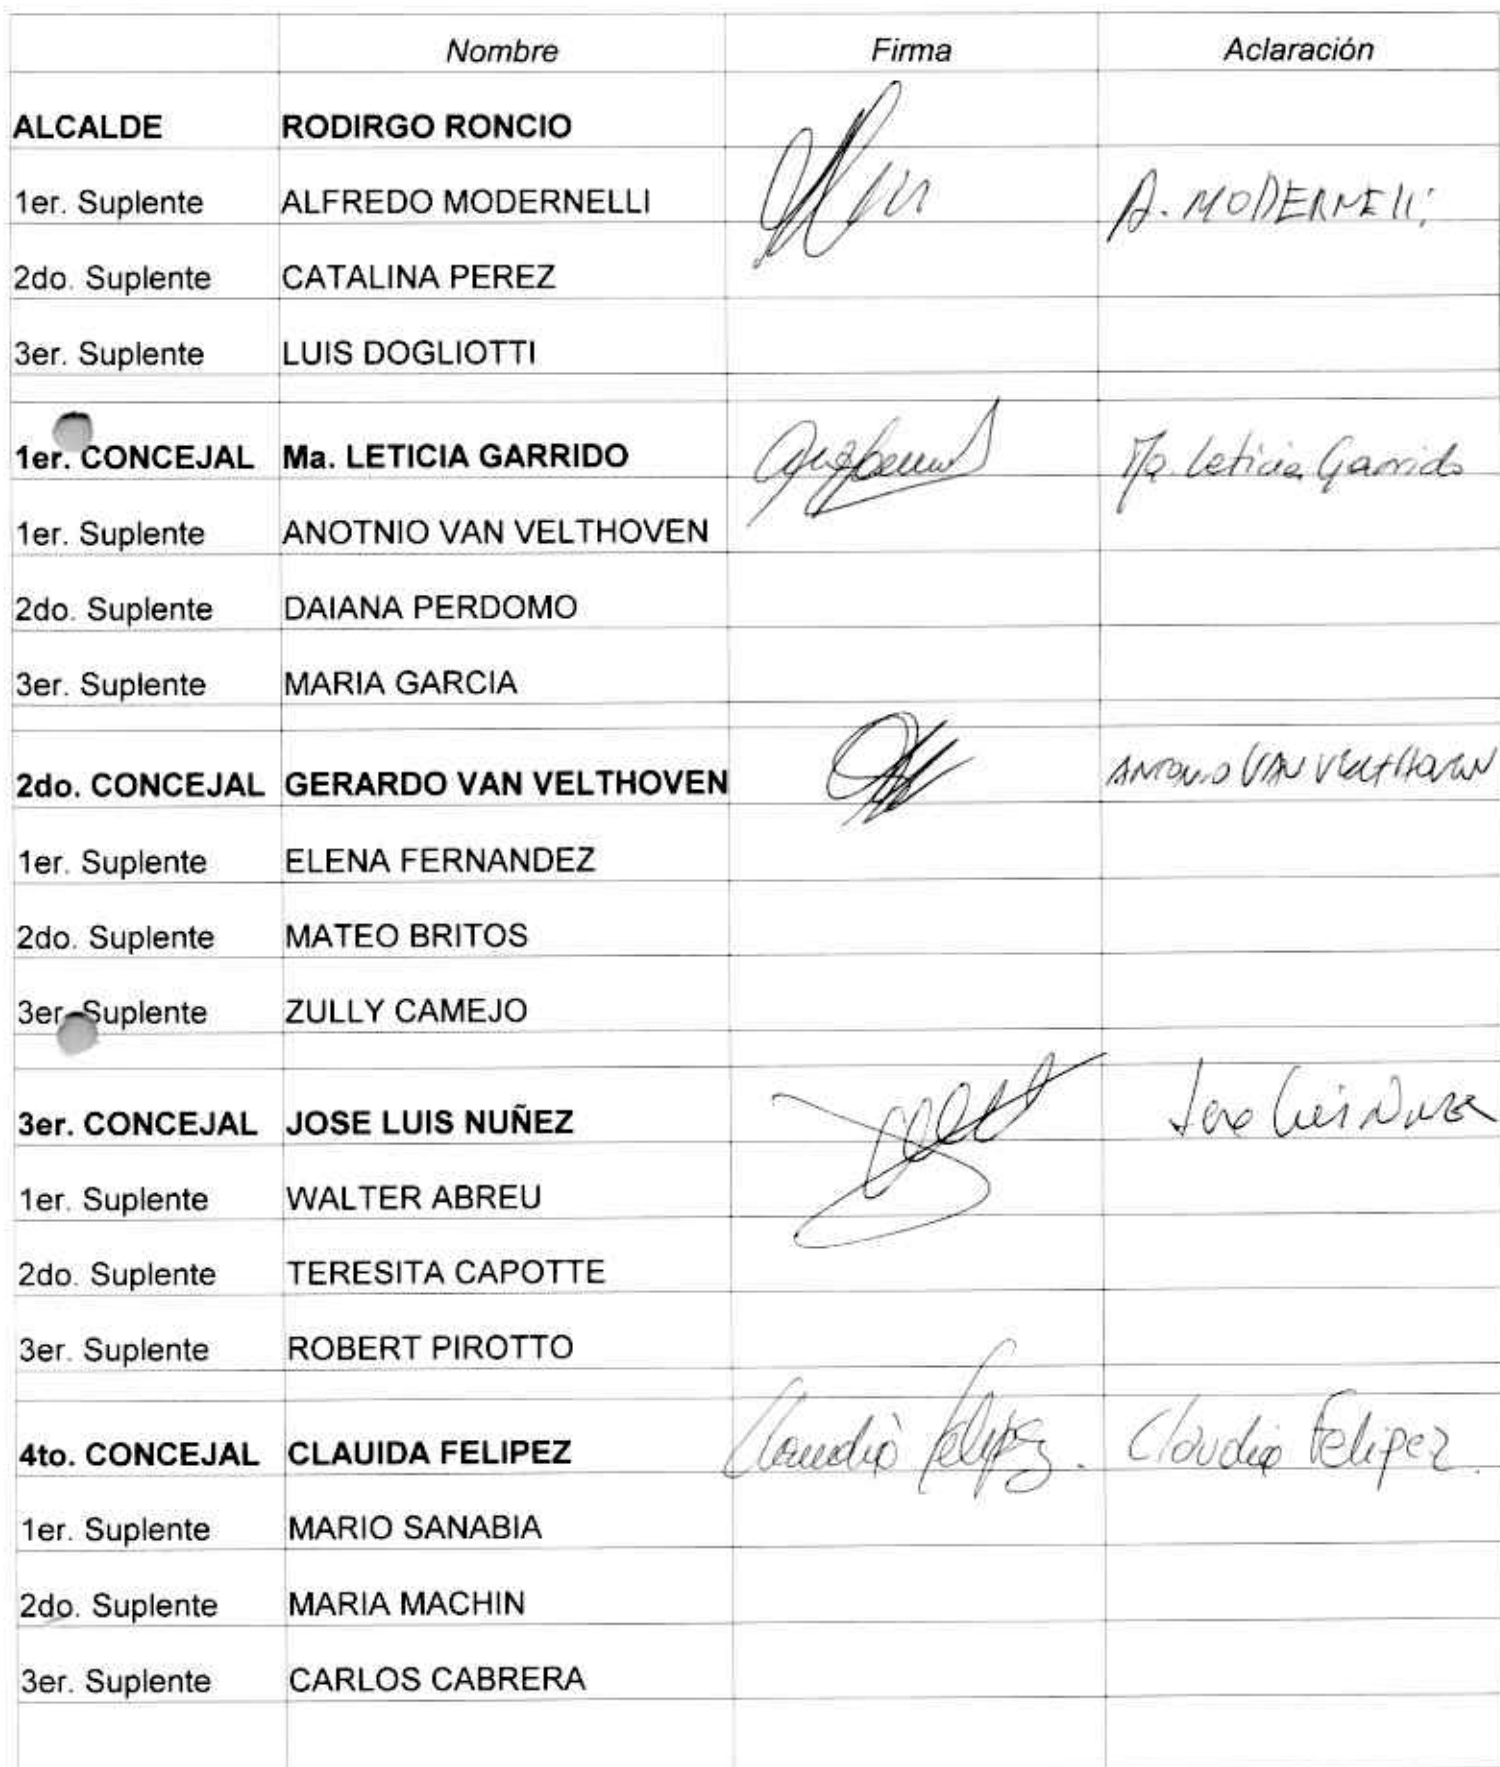 Nombre Firma Aclaración
ALCALDE RODIRGO RONCIO
1er. Suplente ALFREDO MODERNELLI A. MODERNELLI
2do. Suplente CATALINA PEREZ
3er. Suplente LUIS DOGLIOTTI
1er. CONCEJAL Ma. LETICIA GARRIDO Ma. Leticia Garrido
1er. Suplente ANOTNIO VAN VELTHOVEN
2do. Suplente DAIANA PERDOMO
3er. Suplente MARIA GARCIA
2do. CONCEJAL GERARDO VAN VELTHOVEN ANTONIO VAN VELTHOVEN
1er. Suplente ELENA FERNANDEZ
2do. Suplente MATEO BRITOS
3er. Suplente ZULLY CAMEJO
3er. CONCEJAL JOSE LUIS NUÑEZ Jose Luis Nuñez
1er. Suplente WALTER ABREU
2do. Suplente TERESITA CAPOTTE
3er. Suplente ROBERT PIROTTO
4to. CONCEJAL CLAUIDA FELIPEZ Claudia Felipez. Claudia Felipez.
1er. Suplente MARIO SANABIA
2do. Suplente MARIA MACHIN
3er. Suplente CARLOS CABRERA